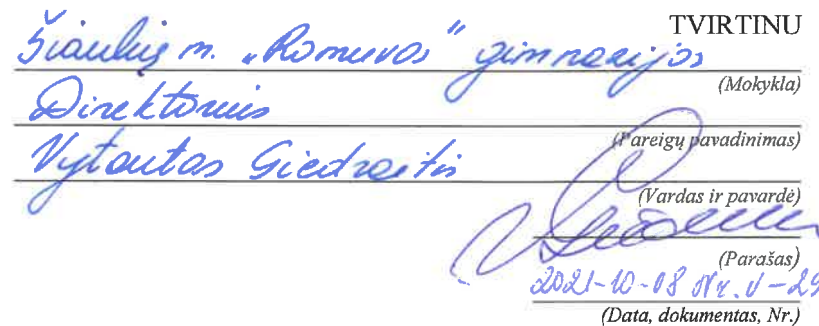 TVIRTINU
Šiaulių m. „Romuvos" gimnazijos
(Mokykla)
Direktorius
(Pareigų pavadinimas)
Vytautas Giedraitis
(Vardas ir pavardė)
(Parašas)
2021-10-08 Nr. V-29
(Data, dokumentas, Nr.)